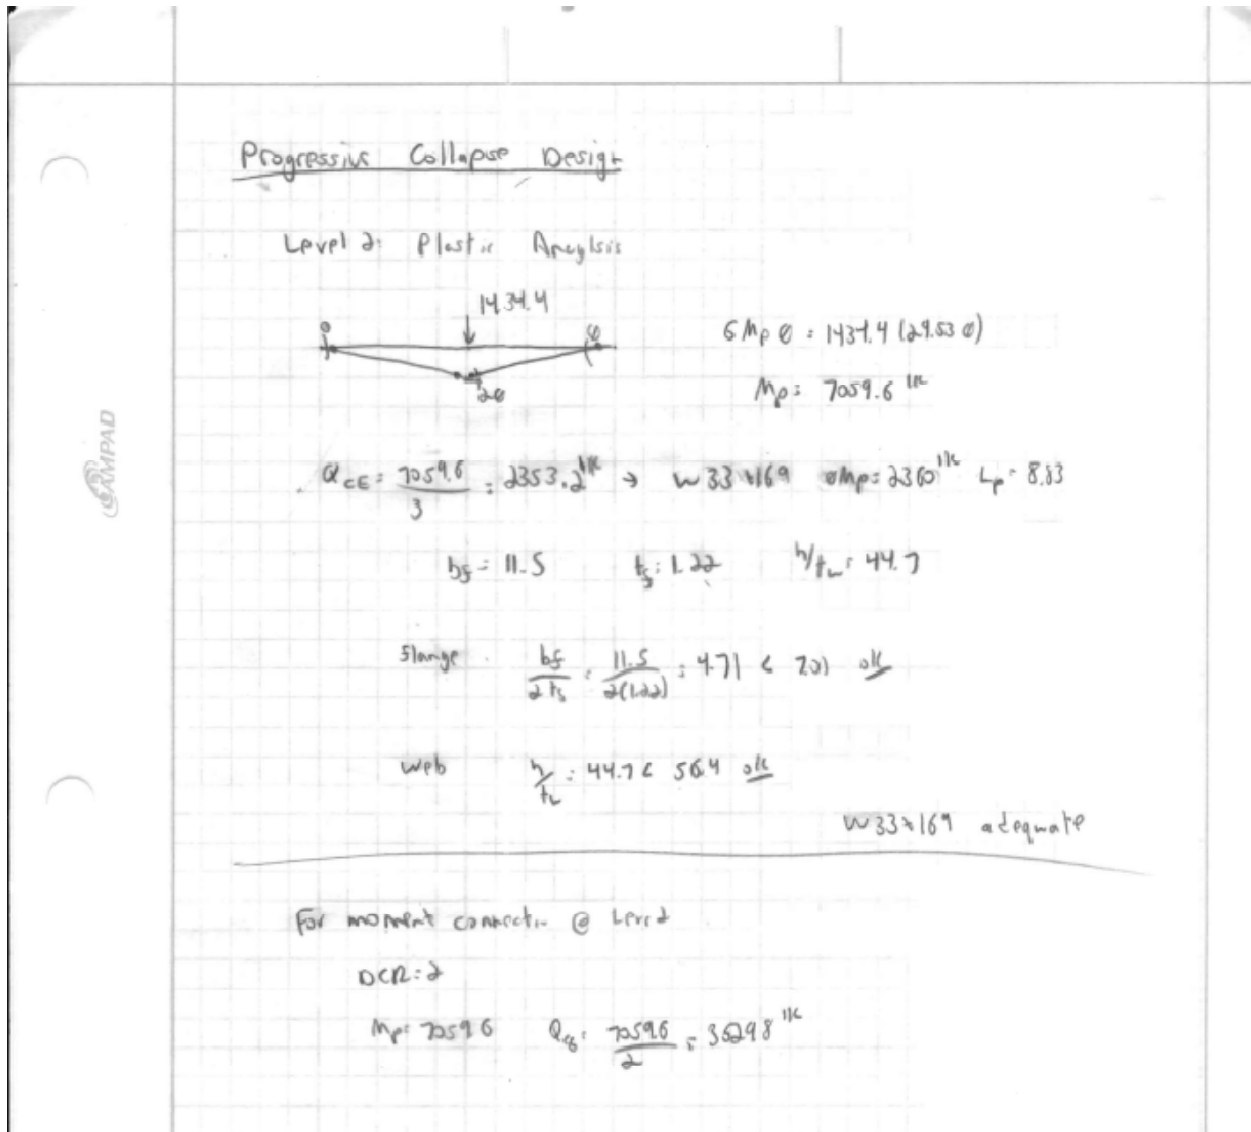 Progressive Collapse Design
Level 2: Plastic Anaylsis
1434.4
θ θ
2θ
6 Mp θ = 1434.4 (29.53 θ)
Mp = 7059.6 'k
AMPAD
QCE = 7059.6/3 = 2353.2 'k → W33x169 øMp = 2360 'k Lp = 8.83
bf = 11.5 tf = 1.22 h/tw = 44.7
Flange bf/2tf = 11.5/2(1.22) = 4.71 < ok
Web h/tw = 44.7 < 56.4 ok
W33x169 adequate
For moment connection @ Level 2
DCR = 2
Mp = 7059.6 QCE = 7059.6/2 = 3529.8 'k